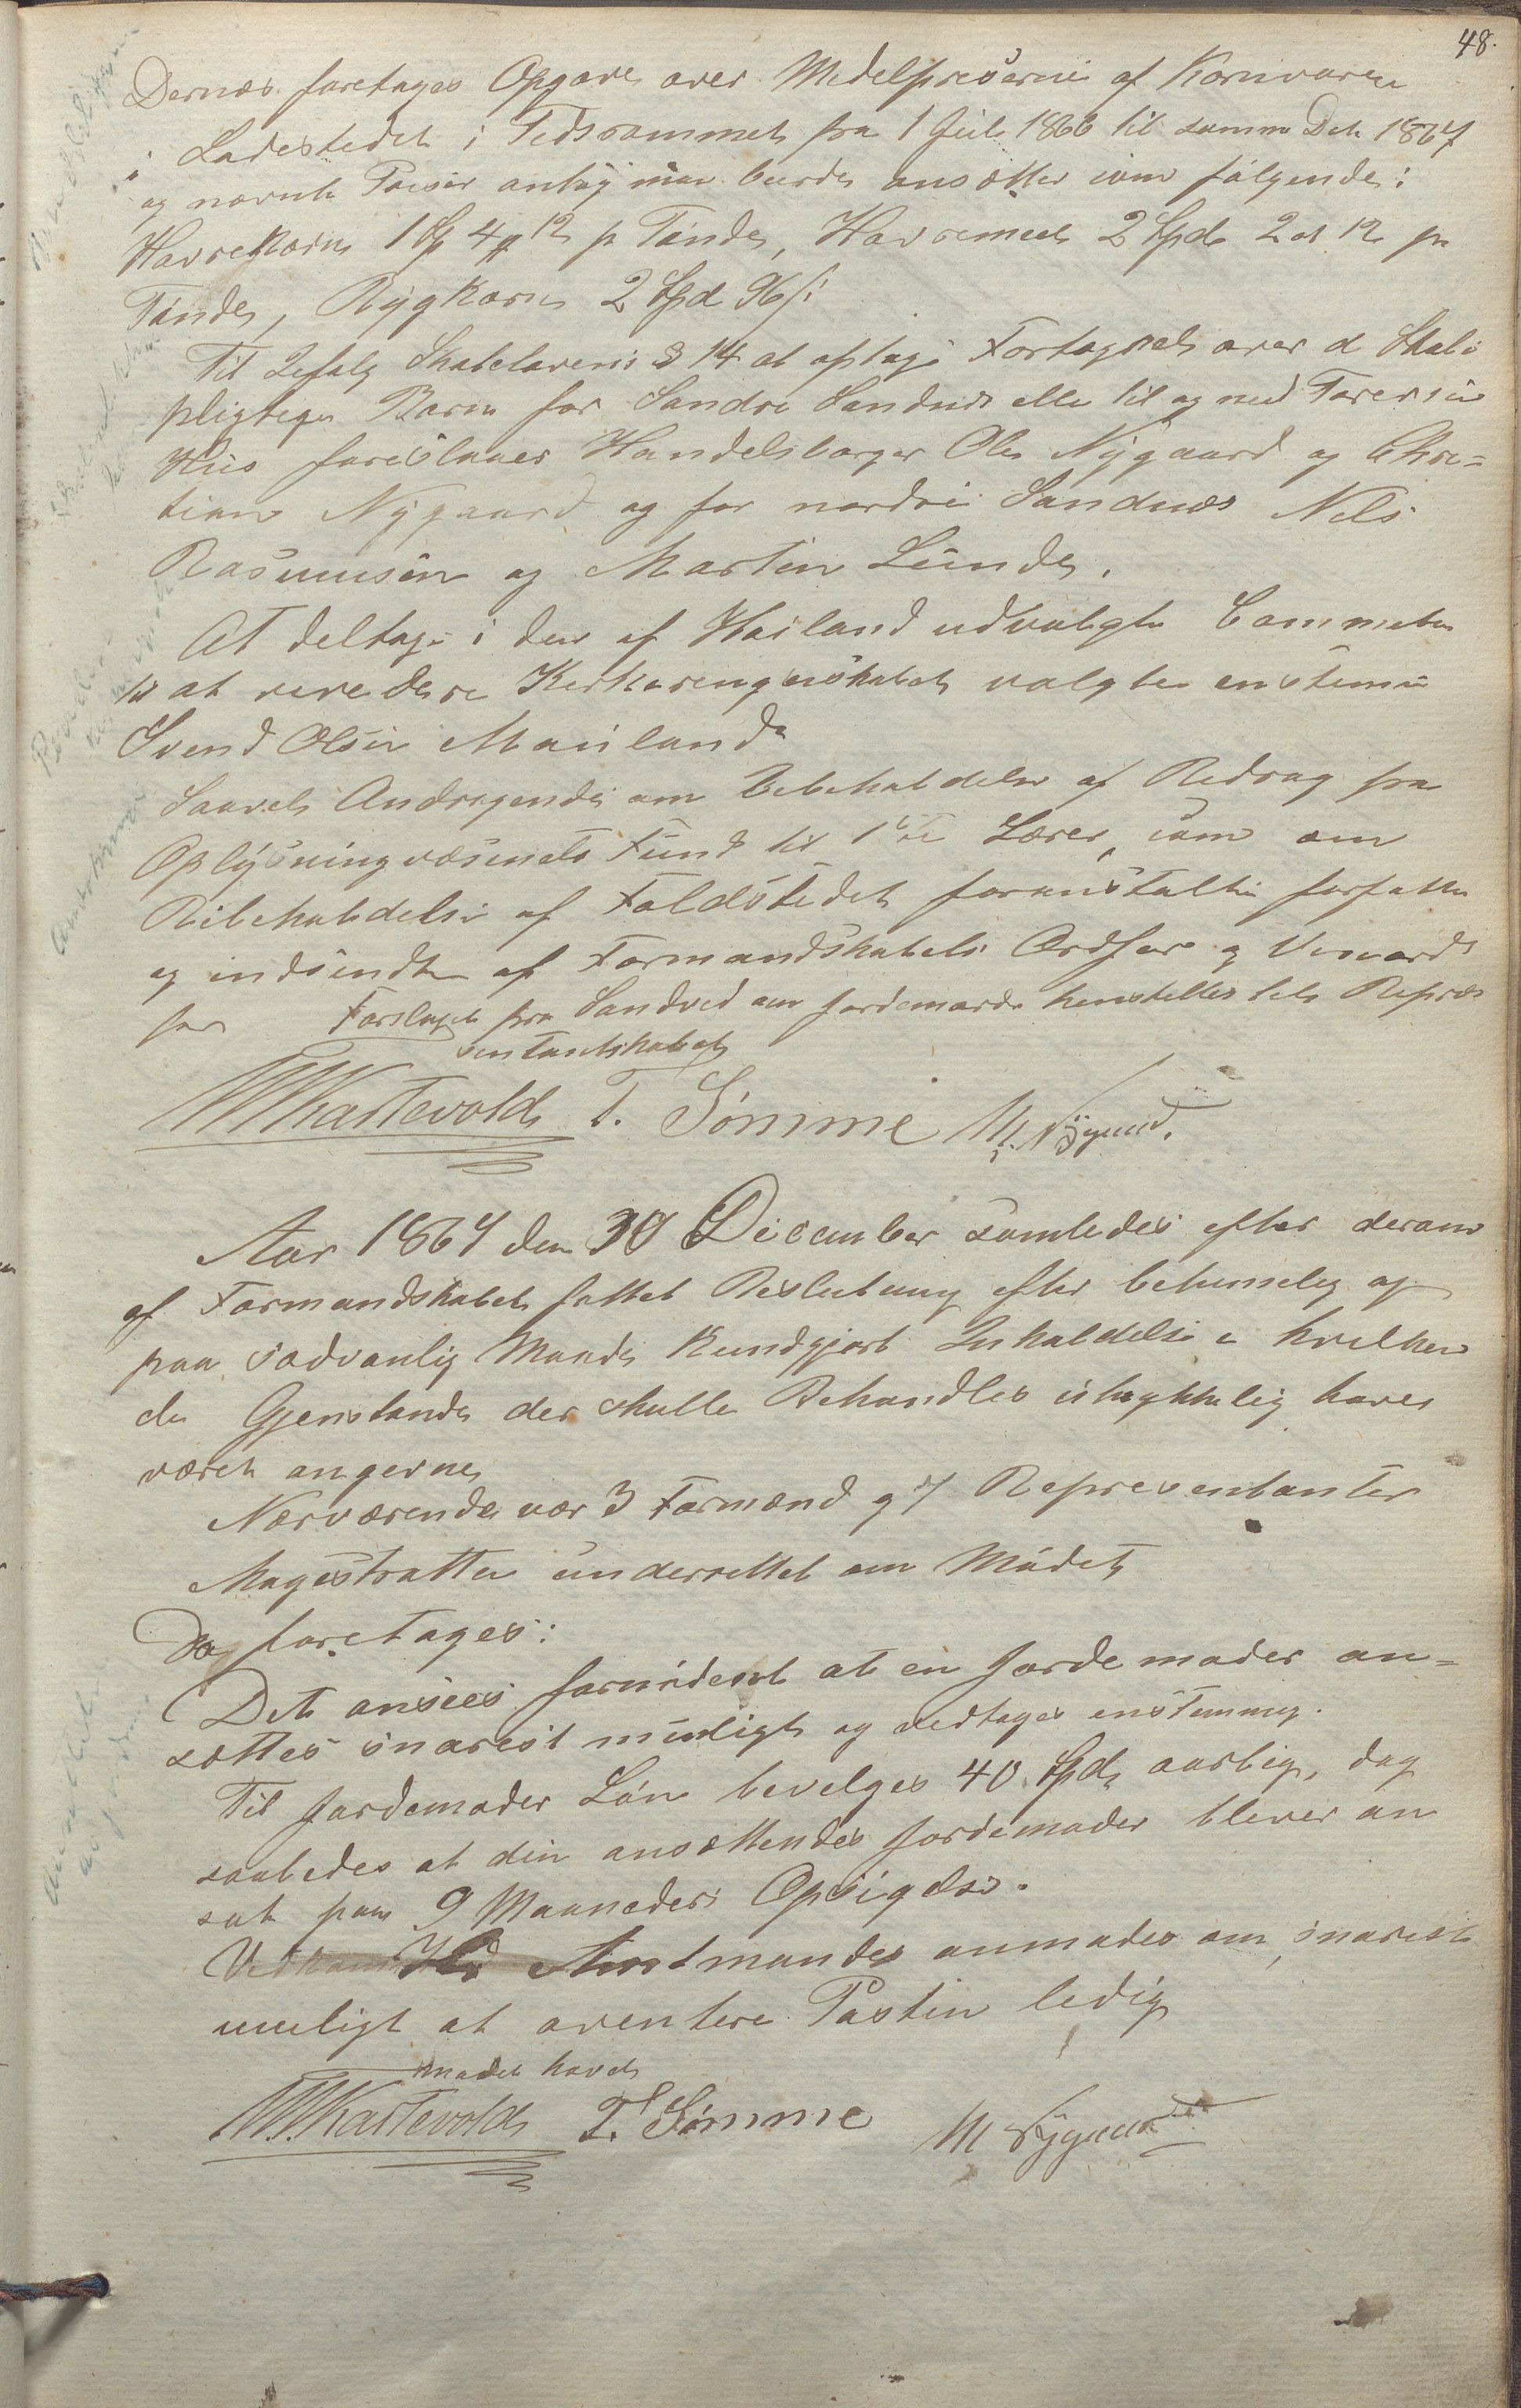 48.
Dernæs foretages Opgave over Medelpriserne af Kornvarer
i Ladestedet i Tedsrommet fra 1 Juli 1866 til samme Dat 1867
og nævnte Priser antog man burde ansættes som følgende:
Havrekorn 1 Sp 4 12 pr Tønde, Havremeel 2 Spd 2 ort 12 pr
Tønde, Rygkorn 2 Spd 96 s
Til Ifølg Skolelovens § 14 at optage Fortegnels over d Skole
pligtige Barn for Søndre Sandnæs eller til og med Torersens
Hus foreslaaes Handelsborger Ole Nygaard og Chris=
tian Nygaard og for nordre Sandnæs Nels
Rasmusen og Martin Lunde.
At deltage i den af Høiland udvalgte Commete
til at revedere Kerkeregnskabet valgtes enstemmi
Svend Olsen Mauland
Saavel Andragende om Bebeholdelse af Bedrag fra
Oplysningvæsenets Fund til 1ste Lærer, som om
Bibeholdelse af Toldstedet foranstaltes forfattet
og indsendt af Formandskabets Ordfører og Viseord
før Forslaget fra Sandved om Jordemoder henstilles tel Repræs
entantskabet
W Kastevold T. Sømme M. Nygaard.
Aar 1867 den 30 December samledes efter derom
af Formandskabet fattet Beslutning efter betimelig og
paa sædvanlig Maade kundgjort Inkaldelse i hvilken
de Gjenstande der skulle Behandles udtrykkelig haver
været angevne
Nærværende var 3 Formænd og 7 Representanter
Magistratten underrettet om Mødet
Da foretages:
Det ansees fornødent at en Jordemoder an=
sættes snarest muligt og vedtages enstemmig.
Til Jordemoder Løn bevelges 40 Spd aarlig, dog
saaledes at den ansættendes Jordemoder blever an
sat paa 9 Maaneders Opsigelse.
Hr Amtmanden anmodes om snarest
muligt at avertere Posten ledig
Mødet hævet
W. Kastevold T. Sømme M Nygaard